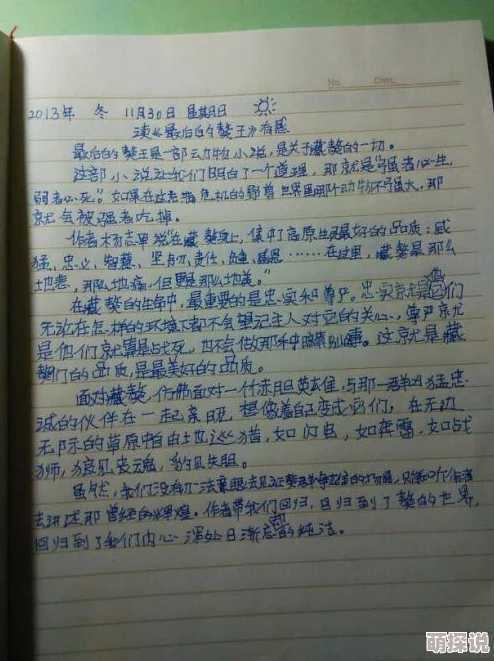 No. Date.
2013年 冬 11月30日 星期日
读《最后的獒王》有感
最后的獒王是一部动物小说,是关于藏獒的一切。
这部小说让我们明白了一个道理,那就是“强者必生,
弱者必死”。如果在这危机的野兽世界里哪个动物不强大,那
就会被强者吃掉。
作者杨志军说“在藏獒身上,集中了高原生灵最好的品质:威
猛、忠义、智慧、坚韧、责任、负重、感恩……在这里,藏獒是那么
地悬,那么地痛,但更是那么地美。”
在藏獒的生命中,最重要的是忠实和尊严。忠实就是它们
无论在怎样的环境下都不会忘记主人对它的关心,尊严就
是他们就算是战死,也不会低下
獒们的品质,是最美好的品质。
面对藏獒,仿佛面对一付赤胆英雄,与那一群凶猛忠
诚的伙伴在一起亲昵,想像着自己变成它们,在无边
无际的草原自由地巡猎,如闪电,如奔雷,如战
狮,狼见丧魂,豹见失胆。
虽然,我们没有办法亲眼去见证
去讲述那曾经的辉煌。作者带我们回归,回归到了獒的世界,
回归到了我们内心深处日渐忘却的纯洁。
萌探说